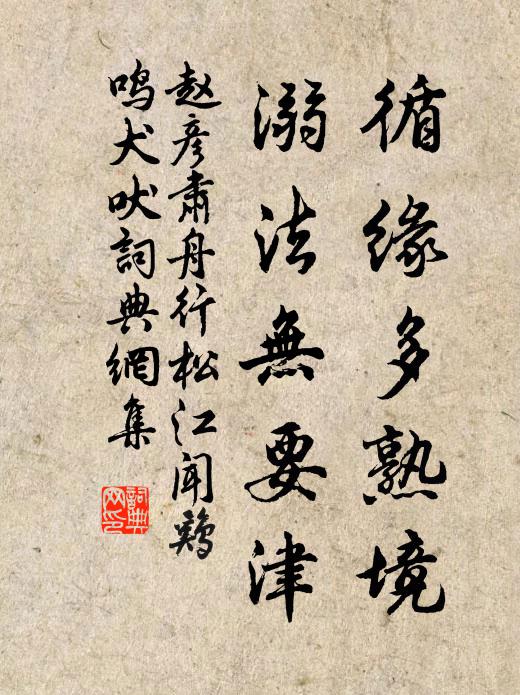 循缘多熟境
溺法無要津
赵彦肃舟行松江闻鷄
鸣犬吠詞典網集
詞典
网印